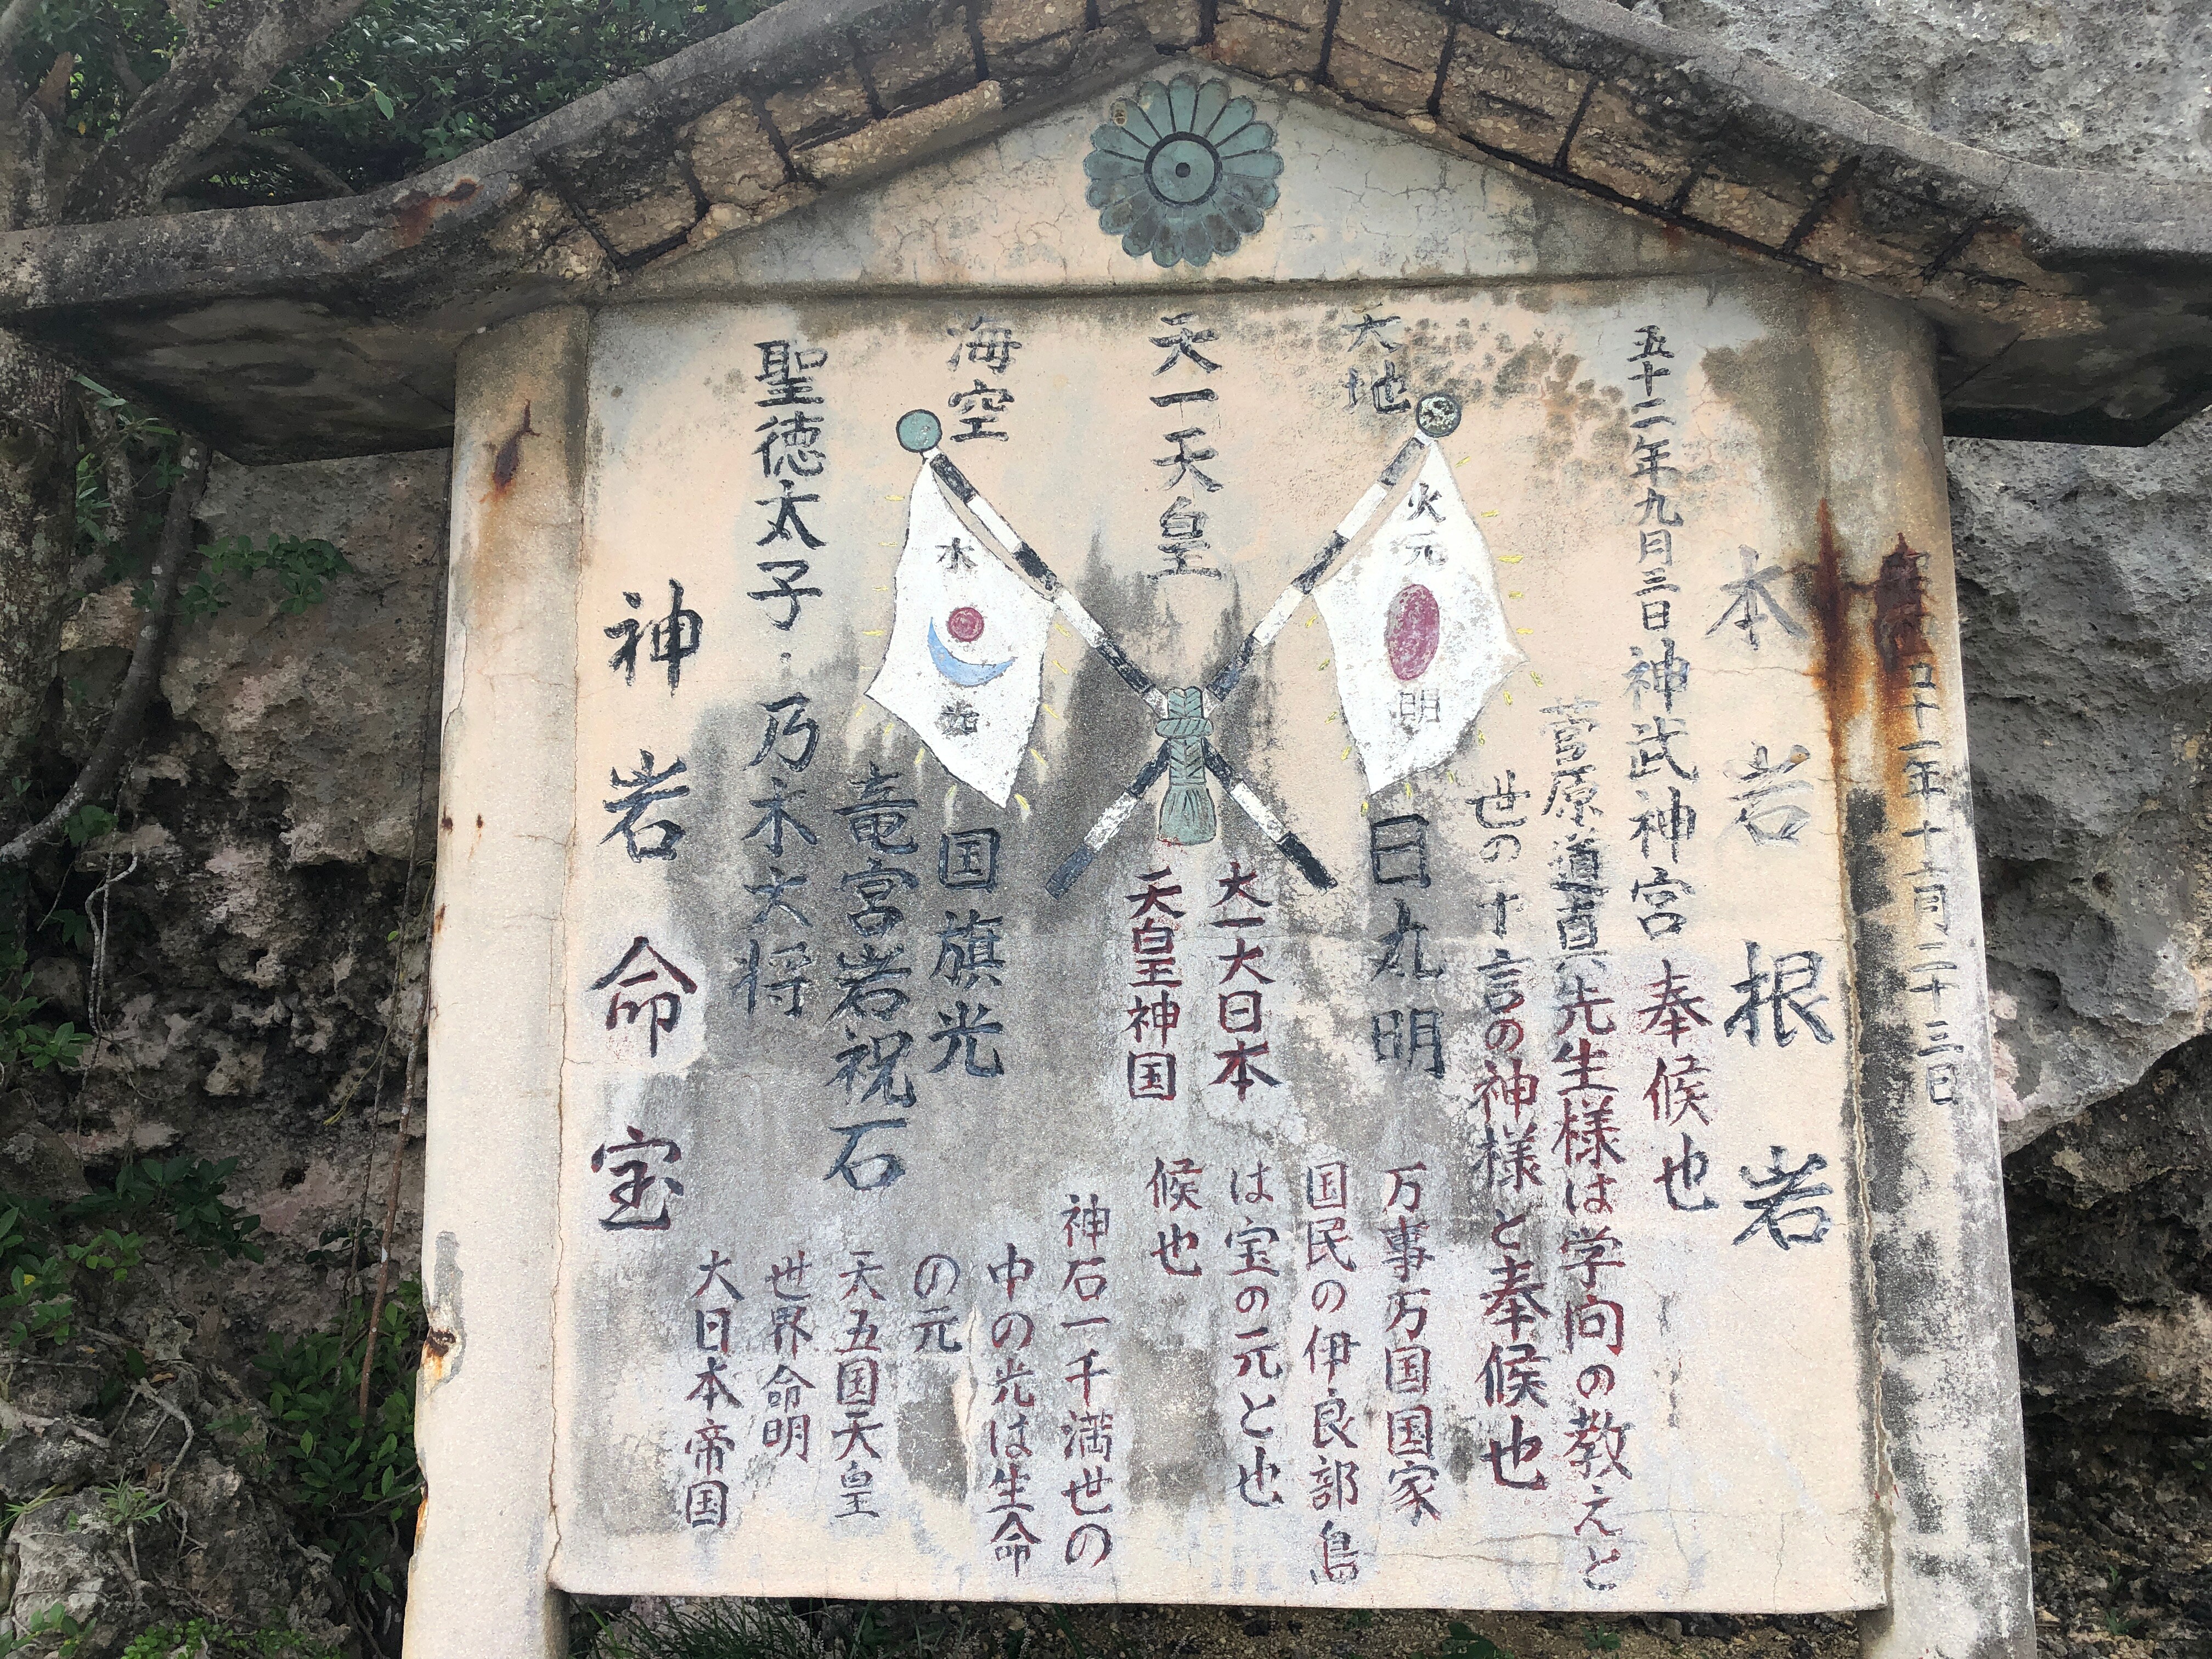 五十一年十一月二十三日
本岩根岩
五十二年九月三日神武神宮奉候也
菅原道真先生様は学問の教えと
世の十言の神様と奉候也
大地
火元
明
日丸明
万事万国国家
国民の伊良部島
は宝の元と也
候也
天一天皇
大一大日本
天皇神国
神石一千満世の
中の光は生命
の元
海空
水
国旗光
竜宮岩祝石
天五国天皇
世界命明
大日本帝国
聖徳太子・乃木大将
神岩命宝